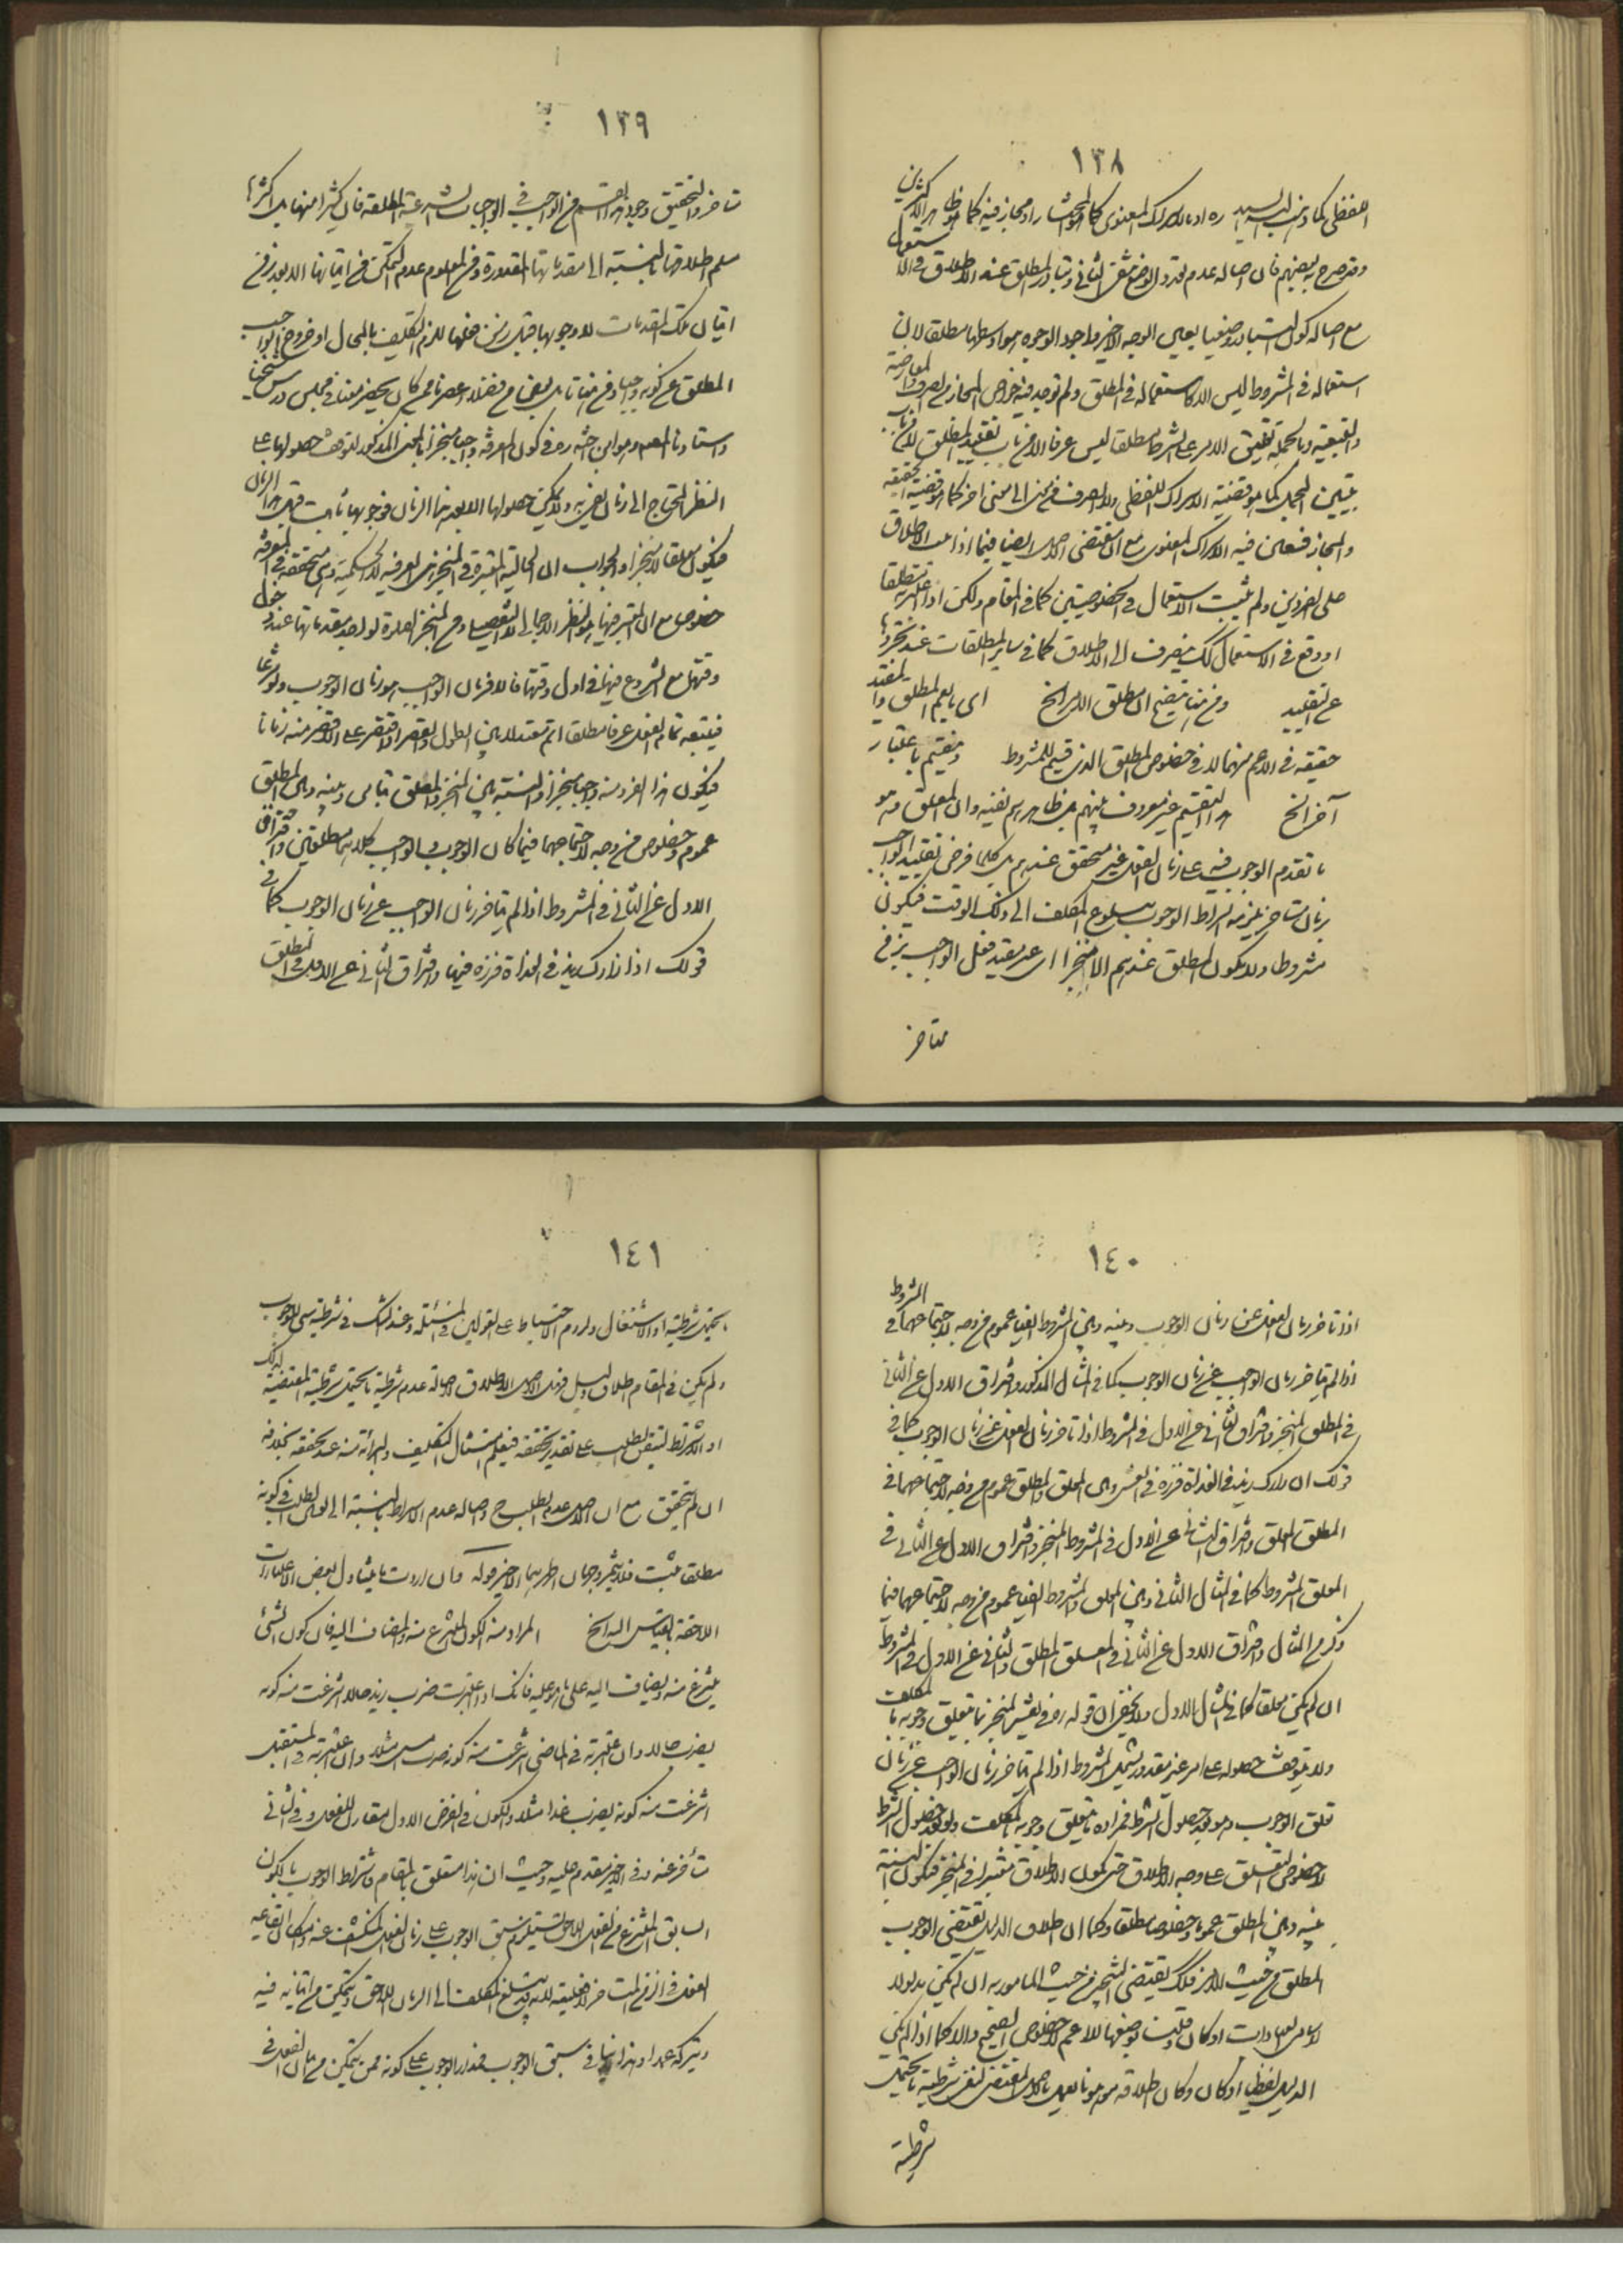 ١٣٨
اللفظى كما ذهب اليه السيد ره او بالاشتراك المعنوى كما هو المختار او مجاز فيه كما هو ظاهر الاكثرين
وقد صرح به بعضهم فان اصالة عدم تعدد الوضع الثانى وتبادر المطلق عند الاطلاق
مع اصالة كون التبادر وضعيا يعين الوجه الاخير واجود الوجوه هو اوسطها مطلقا لان
استعماله فى المشروط ليس الا كاستعماله فى المطلق ولم توجد فيه خواص المجاز من الصرف والمعارضة
والتبعية وبالجملة تعليق الامر على الشرط مطلقا ليس عرفا الا من باب تقييد المطلق لا من باب
تبيين المجمل كما هو قضية الاشتراك اللفظى ولا الصرف من معنى الى معنى اخر كما هو قضية الحقيقة
والمجاز فتعين فيه الاشتراك المعنوى مع انه مقتضى الاصل ايضا فيما اذا ثبت الاطلاق
على الفردين ولم يثبت الاستعمال فى الخصوصيتين كما فى المقام ولكن اذا اعتبر مطلقا
او وقع فى الاستعمال كك ينصرف الى الاطلاق كما فى ساير المطلقات عند تجردها
عن التقييد ومن هنا يتضح ان مطلق الامر الخ اى ما يعم المطلق والمقيد
حقيقة فى الاعم منهما لا فى خصوص المطلق الذى قسيم للمشروط وينقسم باعتبار
آخر الخ هذا التقسيم غير معروف بينهم بل ظاهرهم نفيه وان المعلق وهو
ما تقدم الوجوب فيه على زمان الفعل غير متحقق عندهم بل كلما فرض تقييد الواجب
بزمان متاخر يلزمه اشتراط الوجوب ببلوغ المكلف الى ذلك الوقت فيكون
مشروطا ولا يكون المطلق عندهم الا منجزا اى غير مقيد فعل الواجب بزمن
متاخر
١٣٩
متاخر والتحقيق وجود هذا القسم من الواجب فى الواجبات الشرعية المطلقة فان كثيرا منها بل اكثرها
مسلم اطلاقها بالنسبة الى مقدماتها المقدورة ومن المعلوم عدم التمكن من اتيانها الا بعد زمن
اتيان تلك المقدمات فلولا وجوبها قبل زمن فعلها للزم التكليف بالمحال او خروج الواجب
المطلق عن كونه واجبا ومن هنا تامل بعض من فضلاء عصرنا ممن كان يحضر معنا فى مجلس درس شيخنا
واستادنا المعصوم هو ابن اخته ره فى كون المعرفة واجبا منجزا بالمعنى المذكور لتوقف حصولها على
النظر المحتاج الى زمان يعتد به ولا يمكن حصولها الا بعد هذا الزمان فوجوبها ثابت قبل هذا الزمان
فيكون معلقا لا منجزا والجواب ان الحالية المعتبرة فى المنجز هى العرفية لا الحكمية وهى متحققة فى المعرفة
خصوصا مع ان المعتبر فيها هو النظر الاجمالى لا التفصيلى ومن المنجز الصلوة لواجد مقدماتها عند دخول
وقتها مع الشروع فيها فى اول وقتها فالمراد من زمان الواجب هو زمان الوجوب ولو شرعا
فيتبعه تمام الفعل عرفا مطلقا ام مقتدلا بين الطول والقصر او اقتصر على الاقصر منه زمانا
فيكون هذا الفرد منه واجبا منجزا والنسبة بين المنجز والمعلق تباين وبينه وبين المطلق
عموم وخصوص من وجه لاجتماعهما فيما كان الوجوب والواجب كلاهما مطلقين وافتراق
الاول عن الثانى فى المشروط اذا لم يتاخر زمان الواجب عن زمان الوجوب كما فى
قولك اذا زارك زيد فى الغداة فزره فيها وافتراق الثانى عن الاول فى المطلق
١٤٠
اذا تاخر زمان الفعل عن زمان الوجوب وبينه وبين المشروط ايضا عموم من وجه لاجتماعهما فى المشروط
اذا لم يتاخر زمان الواجب عن زمان الوجوب كما فى المثال المذكور وافتراق الاول عن الثانى
فى المطلق المنجز وافتراق الثانى عن الاول فى المشروط اذا تاخر زمان الفعل عن زمان الوجوب كما فى
قولك ان زارك زيد فى الغداة فزره فى العشى وبين المعلق والمطلق عموم من وجه لاجتماعهما فى
المطلق المعلق وافتراق الثانى عن الاول فى المشروط المنجز وافتراق الاول عن الثانى فى
المعلق المشروط كما فى المثال الثانى وبين المعلق والمشروط ايضا عموم من وجه لاجتماعهما فيما
ذكر من المثال وافتراق الاول عن الثانى فى المعلق المطلق والثانى عن الاول فى المشروط
ان لم يكن معلقا كما فى المثال الاول ولا يخفى ان قوله ره فى تفسير المنجز ما تعلق وجوبه بالمكلف
ولا يتوقف حصوله على امر غير مقدور يشمل المشروط اذا لم يتاخر زمان الواجب عن زمان
تعلق الوجوب وهو بعد حصول الشرط فمراده ما يتعلق وجوبه بالمكلف ولو بعد حصول الشرط
لا خصوص التعلق على وجه الاطلاق حتى يكون الاطلاق معتبرا فى المنجز فتكون النسبة
بينه وبين المطلق عموما وخصوصا مطلقا وكما ان اطلاق الدليل يقتضى الوجوب
المطلق من حيث الامر فكك يقتضى التنجيز من حيث المامور به ان لم يكن مدلولا
لاسامى العبادات او كان وقلت بوضعها للاعم لا خصوص الصحيح والا كما اذا لم يكن
الدليل لفظيا او كان وكان اطلاقه موهونا يعمل بالاصل المقتضى لنفى شرطية ما يحتمل
شرطيته
١٤١
ما يحتمل شرطيته او الاشتغال ولزوم الاحتياط على القولين فى المسئلة وعند الشك فى شرطية شى للوجوب
ولم يكن فى المقام اطلاق دليل فهل الاصل الاطلاق لاصالة عدم شرطية ما يحتمل شرطيته المقتضية لذلك
او الاشتراط لتيقن الطلب على تقدير تحققه فيعلم امتثال التكليف والبرائة منه عند تحققه بخلافه
ان لم يتحقق مع ان الاصل عدم الطلب ح واصالة عدم الاشتراط بالنسبة الى الطلب فى كونه
مطلقا مثبت فلا يثمر وجهان اظهرهما الاخير قوله وان اردت ما يتناول بعض الاعتبارات
اللاحقة بالقياس اليه الخ المراد منه الكون المنتزع منه والمضاف اليه فان كون الشئ
ينتزع منه ويضاف اليه على ما هو عليه فانك اذا اعتبرت ضرب زيد حالا انتزعت منه كونه
يضرب حالا وان اعتبرته فى الماضى انتزعت منه كونه ضرب امس مثلا وان اعتبرته فى المستقبل
انتزعت منه كونه يضرب غدا مثلا والكون فى الفرض الاول مقارن للفعل وفى الثانى
متأخر عنه وفى الاخير مقدم عليه وحيث ان هذا متعلق بالمقام فاشتراط الوجوب بالكون
السابق المنتزع من الفعل اللاحق يستلزم سبق الوجوب على زمان الفعل المنكشف عنه
الفعل فى الزمن المتاخر لانه قد يبلغ المكلف الى الزمان اللاحق ويتمكن من اتيانه فيه
ويتركه عمدا وهذا ينافى سبق الوجوب فمدار الوجوب على كونه ممن يتمكن من اتيان الفعل فى